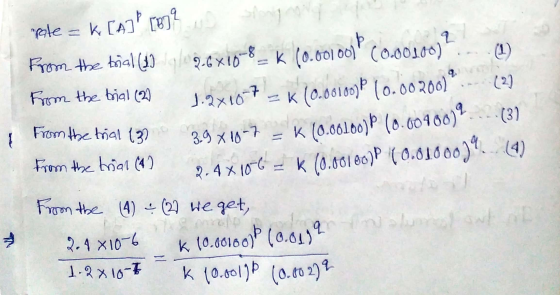 rate = K [A]^p [B]^q
From the trial (1) 2.6×10^-8 = K (0.00100)^p (0.00100)^q .... (1)
From the trial (2) 1.2×10^-7 = K (0.00100)^p (0.00200)^q ..... (2)
From the trial (3) 3.9×10^-7 = K (0.00100)^p (0.00400)^q .... (3)
From the trial (4) 2.4×10^-6 = K (0.00100)^p (0.01000)^q ... (4)
From the (4) ÷ (2) we get,
⇒ 2.4×10^-6 / 1.2×10^-7 = K (0.00100)^p (0.01)^q / K (0.001)^p (0.002)^q